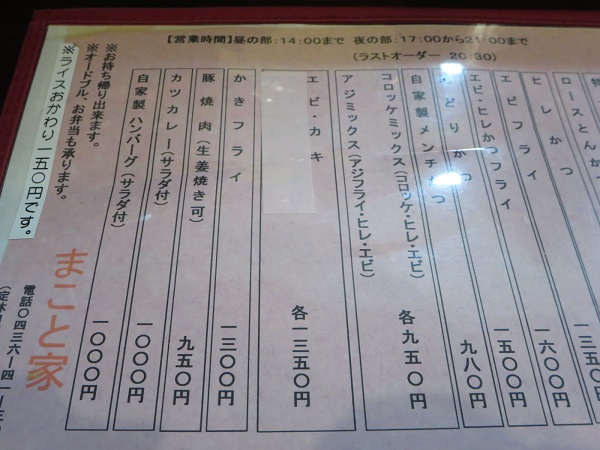 【営業時間】昼の部:14:00まで 夜の部:17:00から21:00まで
(ラストオーダー 20:30)
ロースとんか
ヒレかつ 一三五〇
エビフライ 一六〇〇円
エビ・ヒレかつフライ 一五〇〇円
どりかつ 九八〇円
自家製メンチかつ
コロッケミックス(コロッケ・ヒレ・エビ) 各九五〇円
アジミックス(アジフライ・ヒレ・エビ)
エビ・カキ 各一三五〇円
かきフライ 一三〇〇円
豚焼肉(生姜焼き可) 九五〇円
カツカレー(サラダ付) 一〇〇〇円
自家製ハンバーグ(サラダ付) 一〇〇〇円
※お持ち帰り出来ます。
※オードブル、お弁当も承ります。
※ライスおかわり一五〇円です。
まこと家
電話〇四三六ー四一ー三
(定休